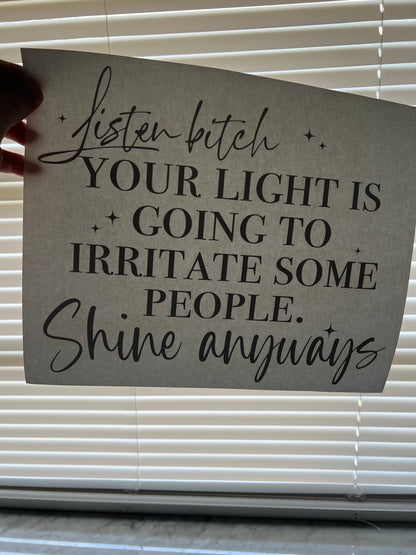 Listen bitch
YOUR LIGHT IS
GOING TO
IRRITATE SOME
PEOPLE.
Shine anyways